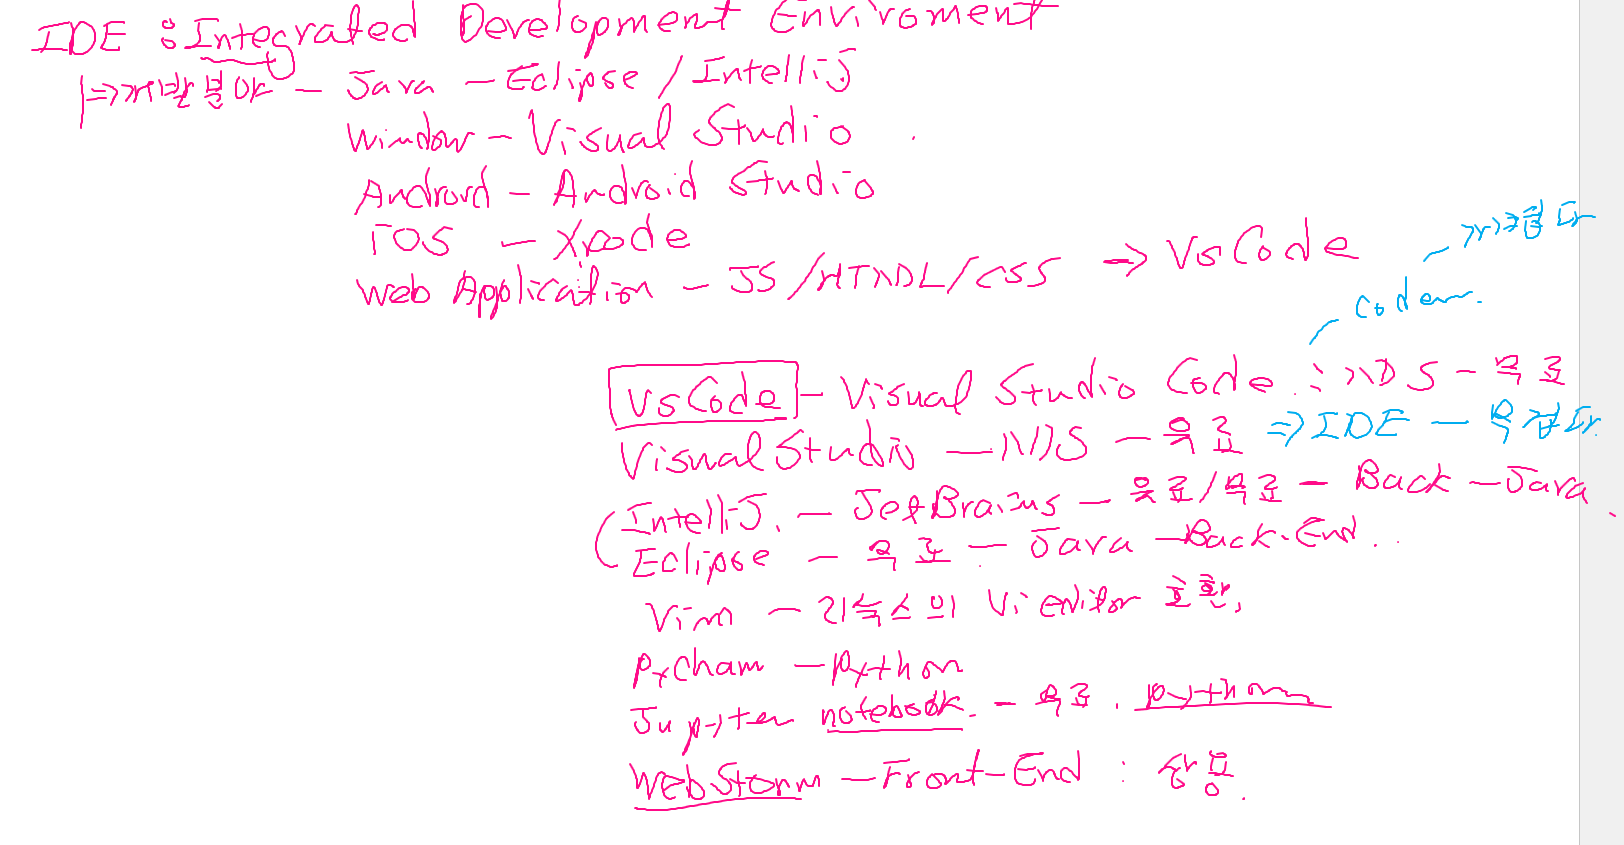 IDE : Integrated Development Enviroment
⇒개발분야 - Java - Eclipse / IntelliJ
Window - Visual Studio
Android - Android Studio
iOS - Xcode
Web Application - JS/HTML/CSS → VsCode
가벼웁다
coder.
VsCode - Visual Studio Code : MS - 무료
Visual Studio - MS - 유료 ⇒ IDE - 무겁다.
IntelliJ. - JetBrains - 유료/무료 - Back - Java
Eclipse - 무료 - Java - Back-End..
Vim - 리눅스의 Vi editor 호환,
PyCham - python
Jupyter notebook. - 무료. python
WebStorm - Front-End : 상용.